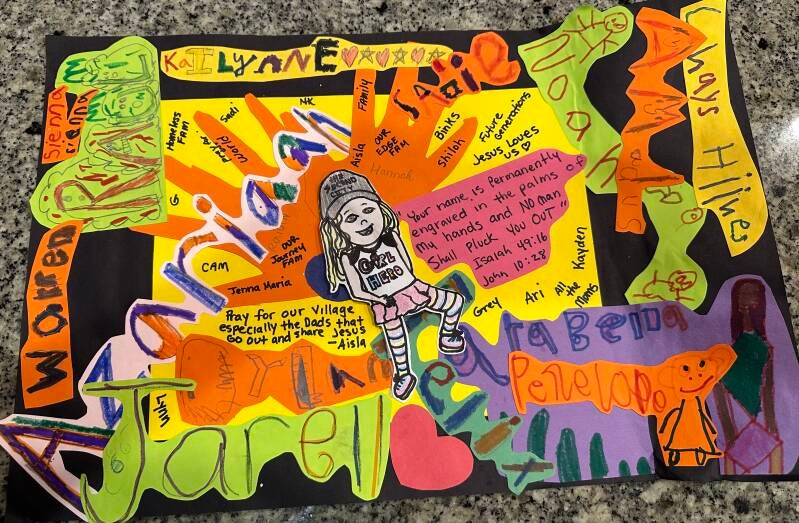 KAILYANNE
Sadie
Noah
Chays Hilines
Sienna
Sienna
Homeless
FAM
Sadi
Pray 4
World
NK
Aisla
FAMILY
OUR
EDGE FAM
Hannah
Binks
Shiloh
Future
Generations
Jesus Loves
US
G
Azarriah
CAM
OUR
Journey
FAM
Jerma Maria
"Your name is permanently
engraved in the palms of
my hands and NO man
Shall Pluck You OUT"
Isaiah 49:16
John 10:28
GIRL
HERO
Warren
Pray for our Village
especially the Dads that
GO out and share Jesus
-Aisla
Grey
Ari
All
the
Moms
Kayden
Penelope
Jarell